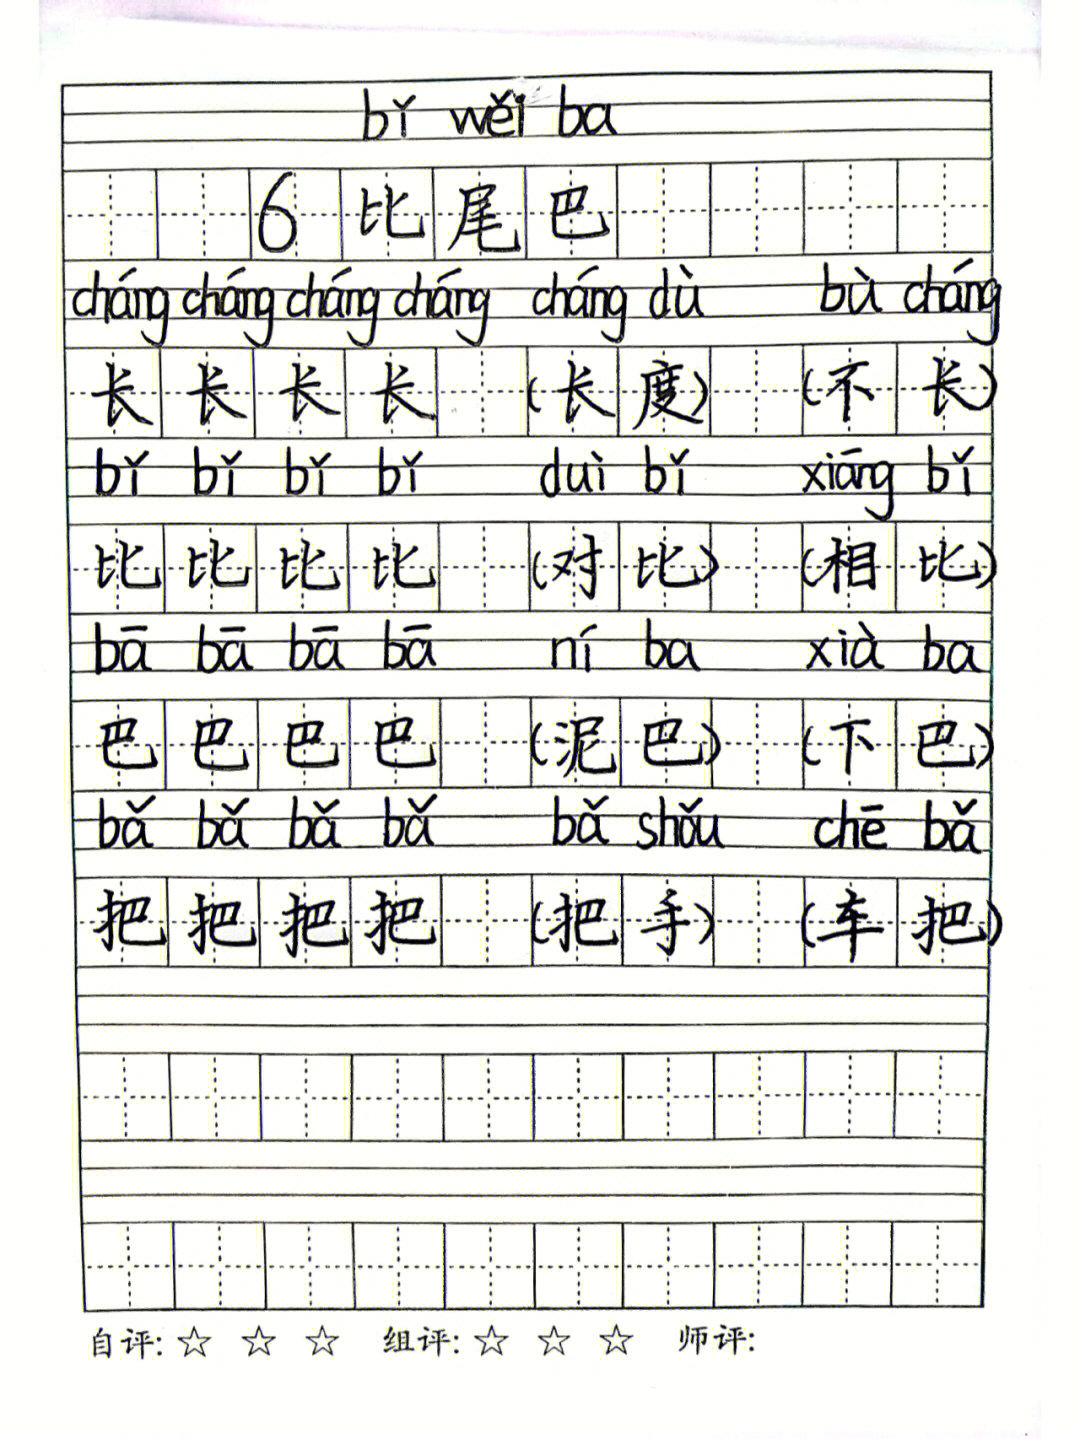 bǐ wěi ba
6 比尾巴
cháng cháng cháng cháng cháng dù bù cháng
长 长 长 长 (长度) (不长)
bǐ bǐ bǐ bǐ duì bǐ xiāng bǐ
比 比 比 比 (对比) (相比)
bā bā bā bā ní ba xià ba
巴 巴 巴 巴 (泥巴) (下巴)
bǎ bǎ bǎ bǎ bǎ shǒu chē bǎ
把 把 把 把 (把手) (车把)
自评: ☆ ☆ ☆ 组评: ☆ ☆ ☆ 师评: